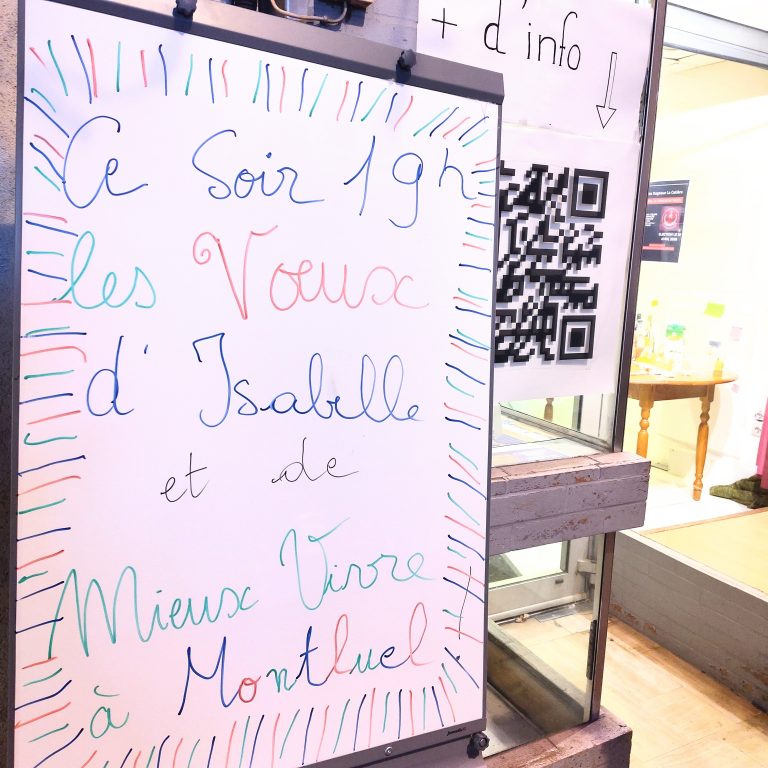 Ce Soir 19h
les Voeux
d'Isabelle
et de
Mieux Vivre
à Montluel
+ d'info